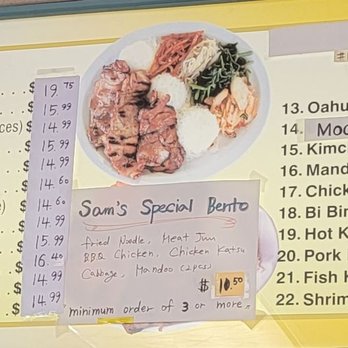 $ 19.75
15.99
ces) $ 14.99
15.99
14.99
14.60
14.60
14.99
15.99
16.40
14.99
14.99
Sam's Special Bento
fried Noodle, Meat Jun
BBQ Chicken, Chicken Katsu
Cabbage, Mandoo (2pcs)
$ 10.50
minimum order of 3 or more
13. Oahu
14. Moc
15. Kimc
16. Mand
17. Chick
18. Bi Bin
19. Hot K
20. Pork
21. Fish K
22. Shrim